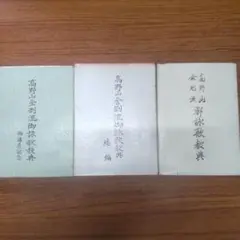 高野山金剛流御詠歌教典
高野山金剛流御詠歌教典
高野山
金剛流
御詠歌教典